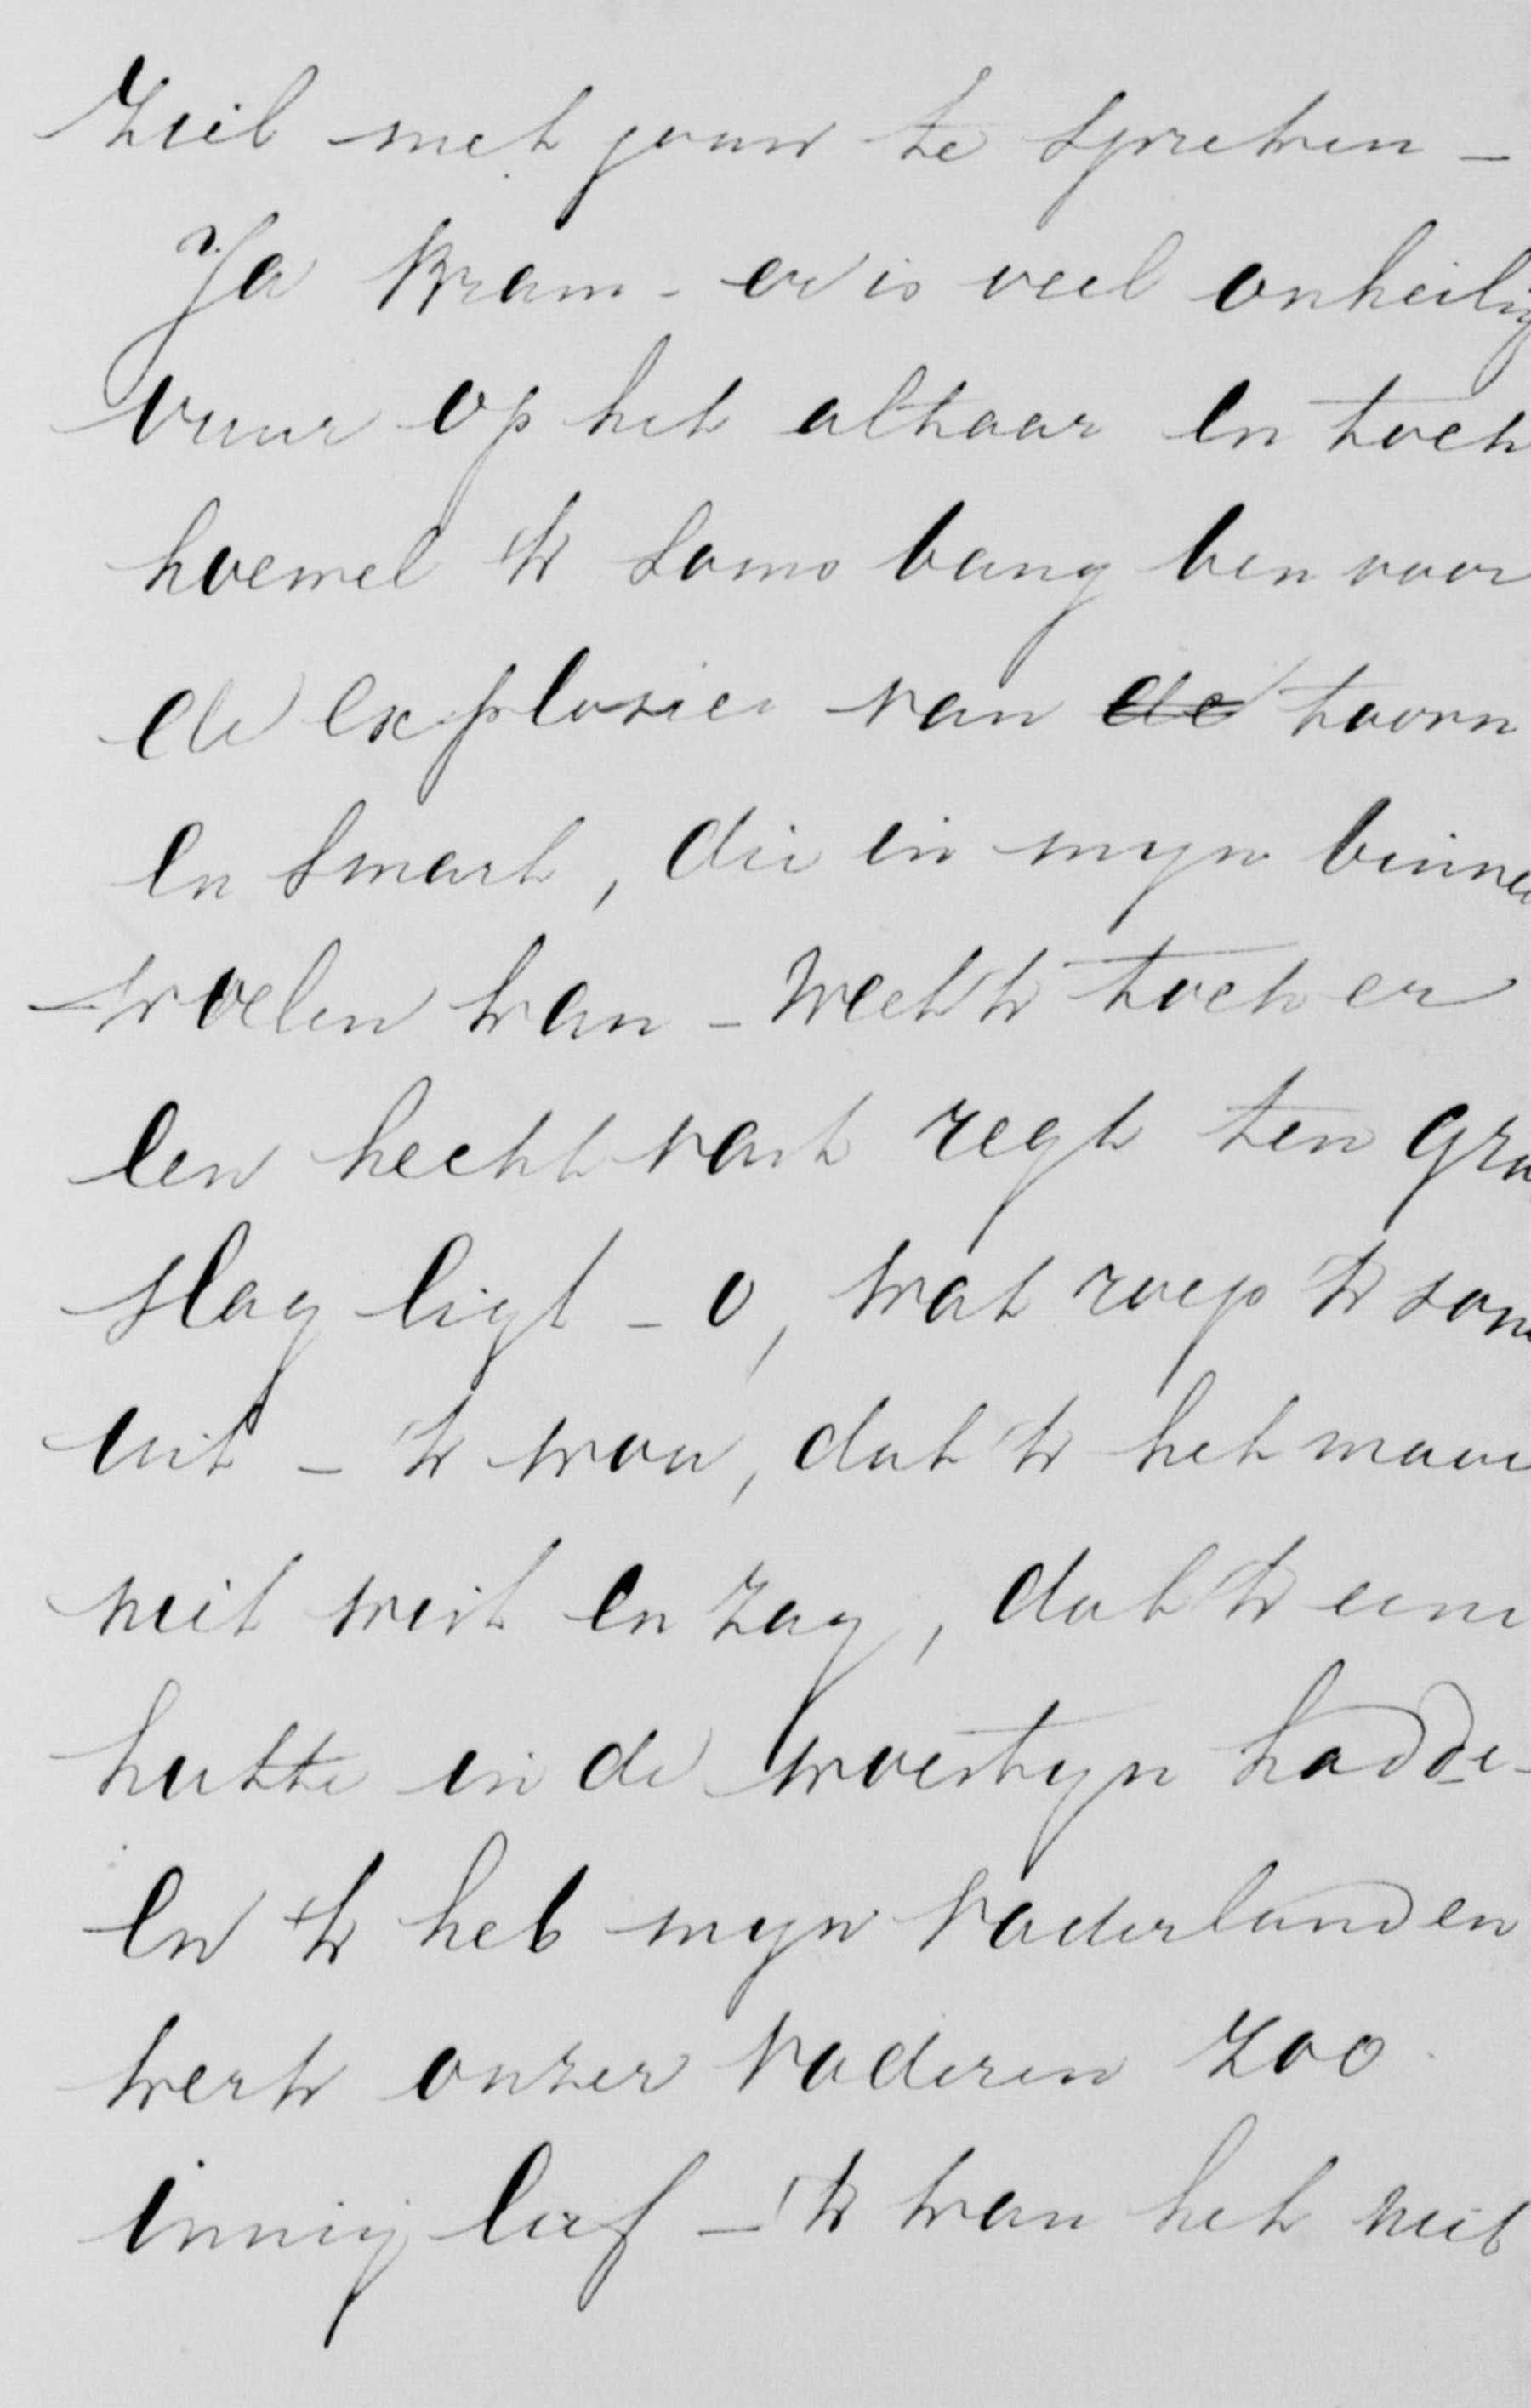 ziel met jouw te spreken -
Ja Bram - er is veel onheilig
vuur op het altaar en toch
hoewel ik soms bang ben voor
de explosies van de toorn
en smart, die in myn binne
woelen kan - weet ik toch er
een hecht vast regt ten gro
slag ligt - o, wat roep ik som
uit - ik wou, dat ik het maar
niet wist en zag, dat ik eene
hutte in de woestyn hadde -
En ik heb myn Vaderland en
kerk onzer Vaderen zoo
innig lief - ik kan het niet